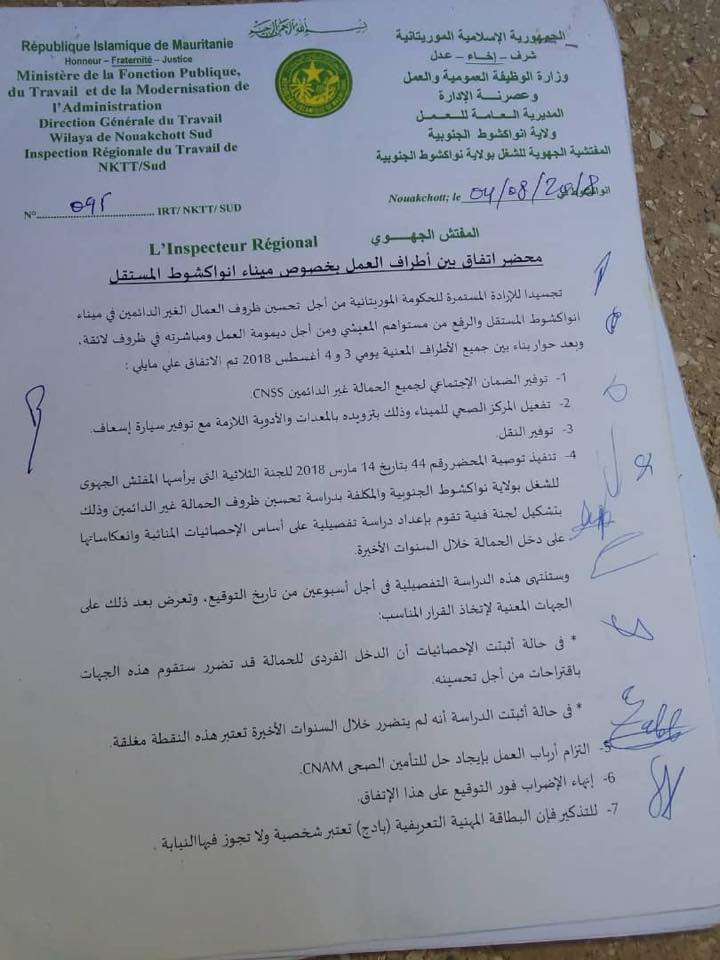 République Islamique de Mauritanie
Honneur – Fraternité – Justice
Ministère de la Fonction Publique,
du Travail et de la Modernisation de
l'Administration
Direction Générale du Travail
Wilaya de Nouakchott Sud
Inspection Régionale du Travail de
NKTT/Sud
بسم الله الرحمن الرحيم
الجمهورية الإسلامية الموريتانية
شرف – إخاء – عدل
وزارة الوظيفة العمومية والعمل
وعصرنة الإدارة
المديرية العامة للعمل
ولاية انواكشوط الجنوبية
المفتشية الجهوية للشغل بولاية نواكشوط الجنوبية
N° IRT/ NKTT/ SUD
Nouakchott; le 04/08/2018 انواكشوط في
L'Inspecteur Régional المفتش الجهوي
محضر اتفاق بين أطراف العمل بخصوص ميناء انواكشوط المستقل
تجسيدا للإرادة المستمرة للحكومة الموريتانية من أجل تحسين ظروف العمال الغير الدائمين في ميناء
انواكشوط المستقل والرفع من مستواهم المعيشي ومن أجل ديمومة العمل ومباشرته في ظروف لائقة،
وبعد حوار بناء بين جميع الأطراف المعنية يومي 3 و 4 أغسطس 2018 تم الاتفاق علي مايلي :
1- توفير الضمان الإجتماعي لجميع الحمالة غير الدائمين CNSS.
2- تفعيل المركز الصحي للميناء وذلك بتزويده بالمعدات والأدوية اللازمة مع توفير سيارة إسعاف.
3- توفير النقل.
4- تنفيذ توصية المحضر رقم 44 بتاريخ 14 مارس 2018 للجنة الثلاثية التى يرأسها المفتش الجهوى
للشغل بولاية نواكشوط الجنوبية والمكلفة بدراسة تحسين ظروف الحمالة غير الدائمين وذلك
بتشكيل لجنة فنية تقوم بإعداد دراسة تفصيلية على أساس الإحصائيات المنائية وانعكاساتها
على دخل الحمالة خلال السنوات الأخيرة.
وستنتهى هذه الدراسة التفصيلية فى أجل أسبوعين من تاريخ التوقيع، وتعرض بعد ذلك على
الجهات المعنية لإتخاذ القرار المناسب:
* فى حالة أثبتت الإحصائيات أن الدخل الفردى للحمالة قد تضرر ستقوم هذه الجهات
باقتراحات من أجل تحسينه.
* فى حالة أثبتت الدراسة أنه لم يتضرر خلال السنوات الأخيرة تعتبر هذه النقطة مغلقة.
5- التزام أرباب العمل بإيجاد حل للتأمين الصحى CNAM.
6- إنهاء الإضراب فور التوقيع على هذا الإتفاق.
7- للتذكير فإن البطاقة المهنية التعريفية (بادج) تعتبر شخصية ولا تجوز فيها النيابة .